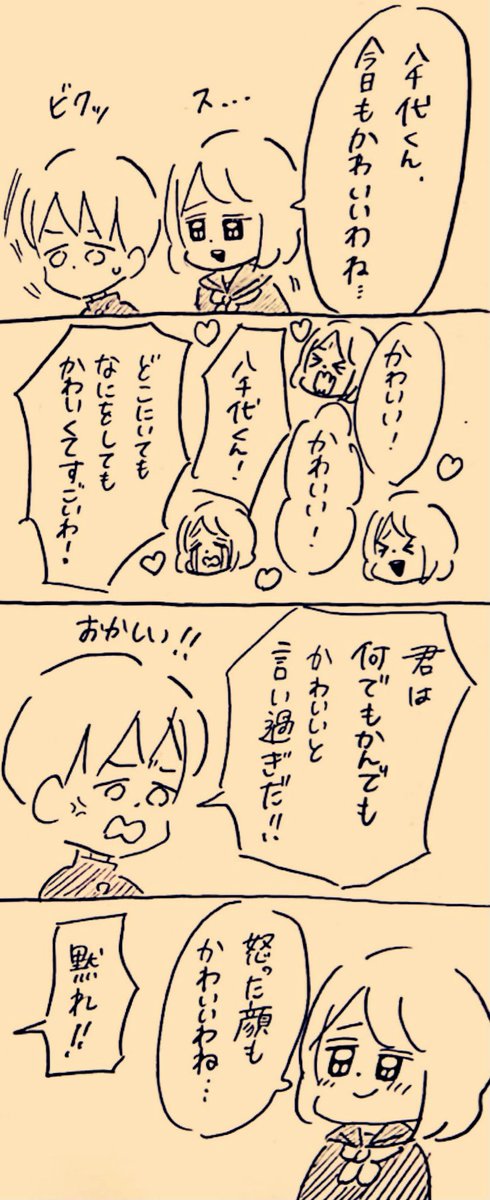 八千代くん、
今日もかわいいわね…
ス…
ビクッ
かわいい！
かわいい！
八千代くん！
どこにいても
なにをしても
かわいくてすごいわ！
君は
何でもかんでも
かわいいと
言い過ぎだ!!
おかしい!!
怒った顔も
かわいいわね…
黙れ!!